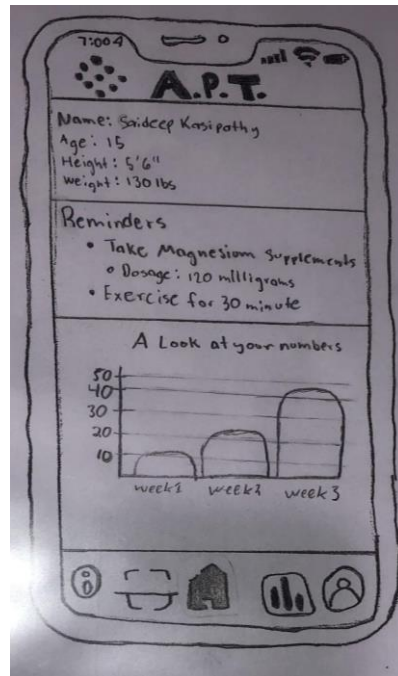 7:004
A.P.T.
Name: Saideep Kasipathy
Age: 15
Height: 5'6"
Weight: 130 lbs
Reminders
• Take Magnesium Supplements
o Dosage: 120 milligrams
• Exercise for 30 minute
A Look at your numbers
50
40
30
20
10
week1 week2 week3